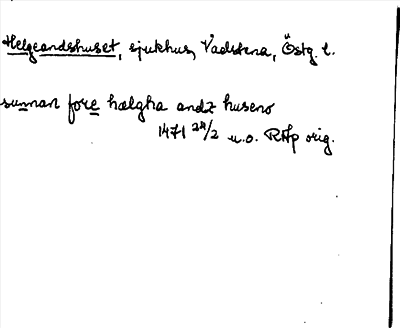 Helgeandshuset, sjukhus, Vadstena, Östg. l.
sunnan fore hælgha andz huseno
1471 24/2 u.o. RAp orig.